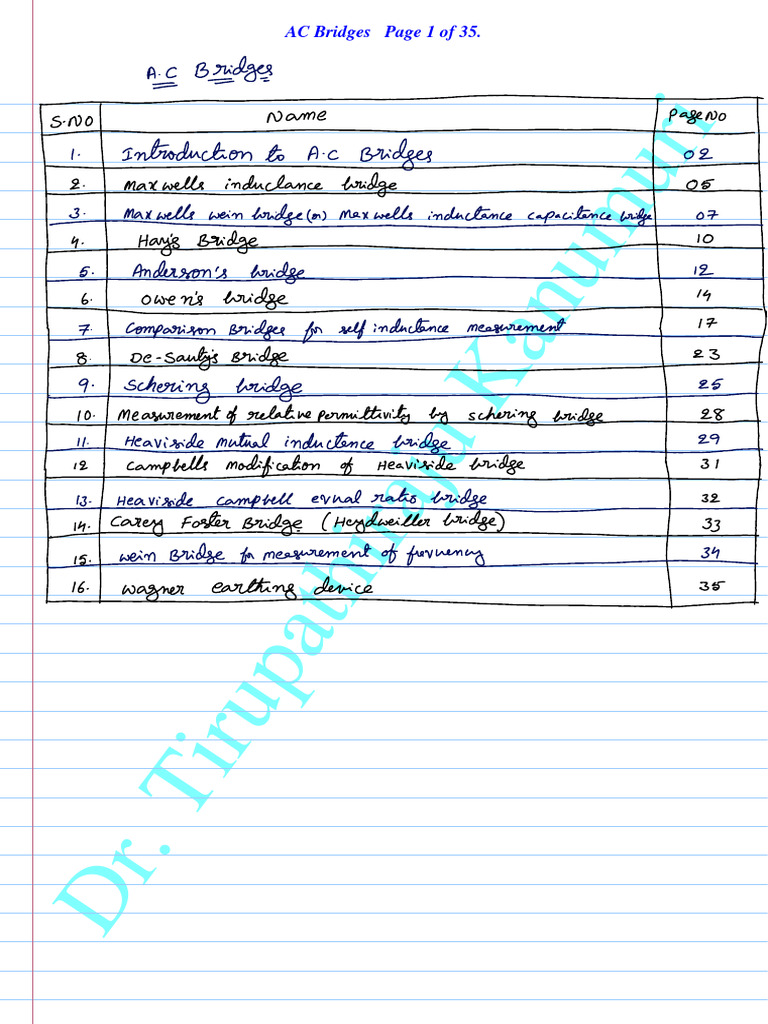 AC Bridges Page 1 of 35.
A.C Bridges
S.NO Name Page No
1. Introduction to A.C Bridges 02
2. Maxwells inductance bridge 05
3. Maxwells wein bridge (or) Maxwells inductance capacitance bridge 07
4. Hay's Bridge 10
5. Anderson's bridge 12
6. Owen's bridge 14
7. Comparison Bridges for self inductance measurement 17
8. De-Sauty's Bridge 23
9. Schering bridge 25
10. Measurement of relative permittivity by schering bridge 28
11. Heaviside mutual inductence bridge 29
12 Campbells modification of Heaviside bridge 31
13. Heaviside campbell equal ratio bridge 32
14. Carey Foster Bridge (Heydweiller bridge) 33
15. wein Bridge for measurement of frequency 34
16. Wagner earthing device 35
Dr. Tirupathiraju Kanumuri